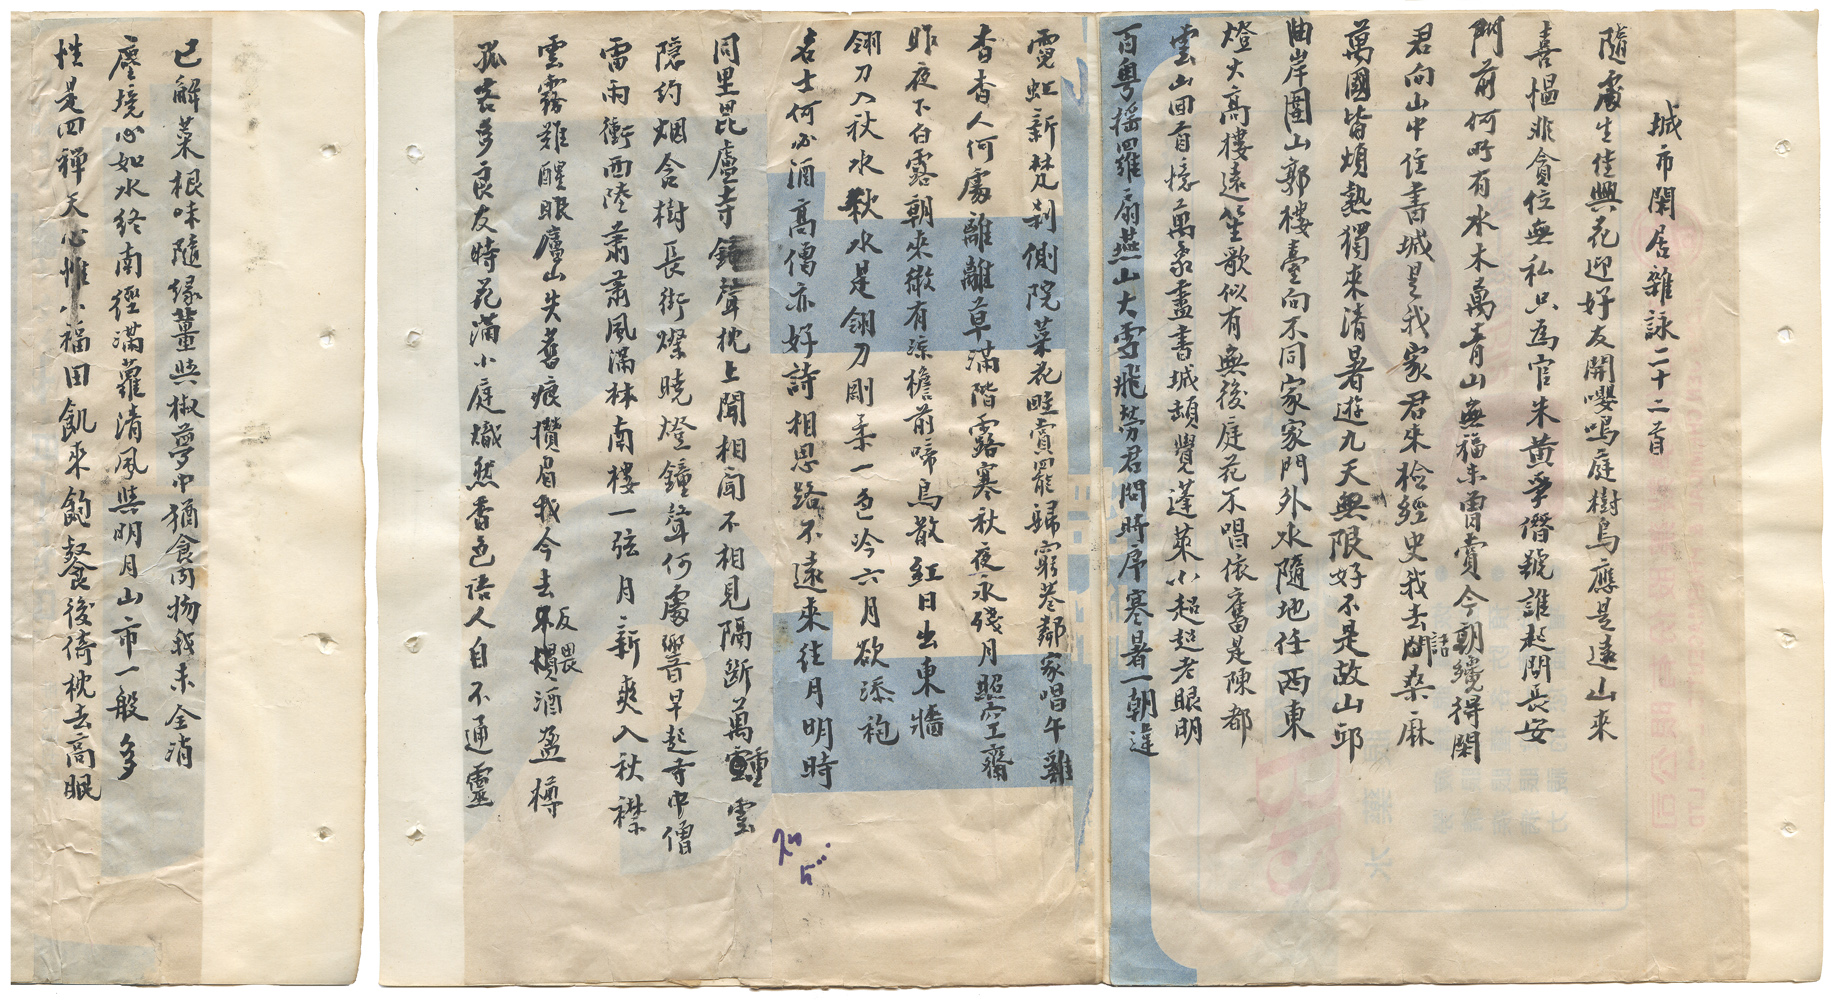 城市閑居雜詠二十二首
隨處生佳興花迎好友開嚶鳴庭樹鳥應是遠山來
喜慍非貪位無私只為官朱黃爭僭號誰起問長安
門前何所有水木萬青山無福未曾賞今朝纔得閑
君向山中住書城是我家君來檢經史我去話桑麻
萬國皆煩熱獨來清暑遊九天無限好不是故山邱
曲岸圍山郭樓臺向不同家家門外水隨地任西東
燈火高樓遠笙歌似有無後庭花不唱依舊是陳都
雲山回首憶萬象盡書城頡覺蓬萊小超超老眼明
百粵搖羅扇燕山大雪飛勞君問時序寒暑一朝違
霓虹新梵剎側院菜花畦賞罷歸窮巷鄰家唱午雞
杳杳人何處離離草滿階露寒秋夜永殘月照空齋
昨夜下白露朝來微有涼檐前啼鳥散紅日出東牆
翎刀入秋水秋水是翎刀剛柔一色冷六月欲添袍
名士何必酒高僧亦好詩相思路不遠來往月明時
同里毘盧寺鐘聲枕上聞相聞不相見隔斷萬重雲
隱約烟含樹長街燦曉燈鐘聲何處響早起寺中僧
雷雨衝西陸蕭蕭風滿林南樓一弦月新爽入秋襟
雲霧難醒眼廬山失舊痕攢眉我今去反畏酒盈樽
孤客多良友時花滿小庭熾然香色語人自不通靈
已解菜根味隨緣薑與椒夢中猶食肉物我未全消
塵境心如水終南徑滿蘿清風與明月山市一般多
性是四禪天心惟小福田飢來飽餐後倚枕去高眠